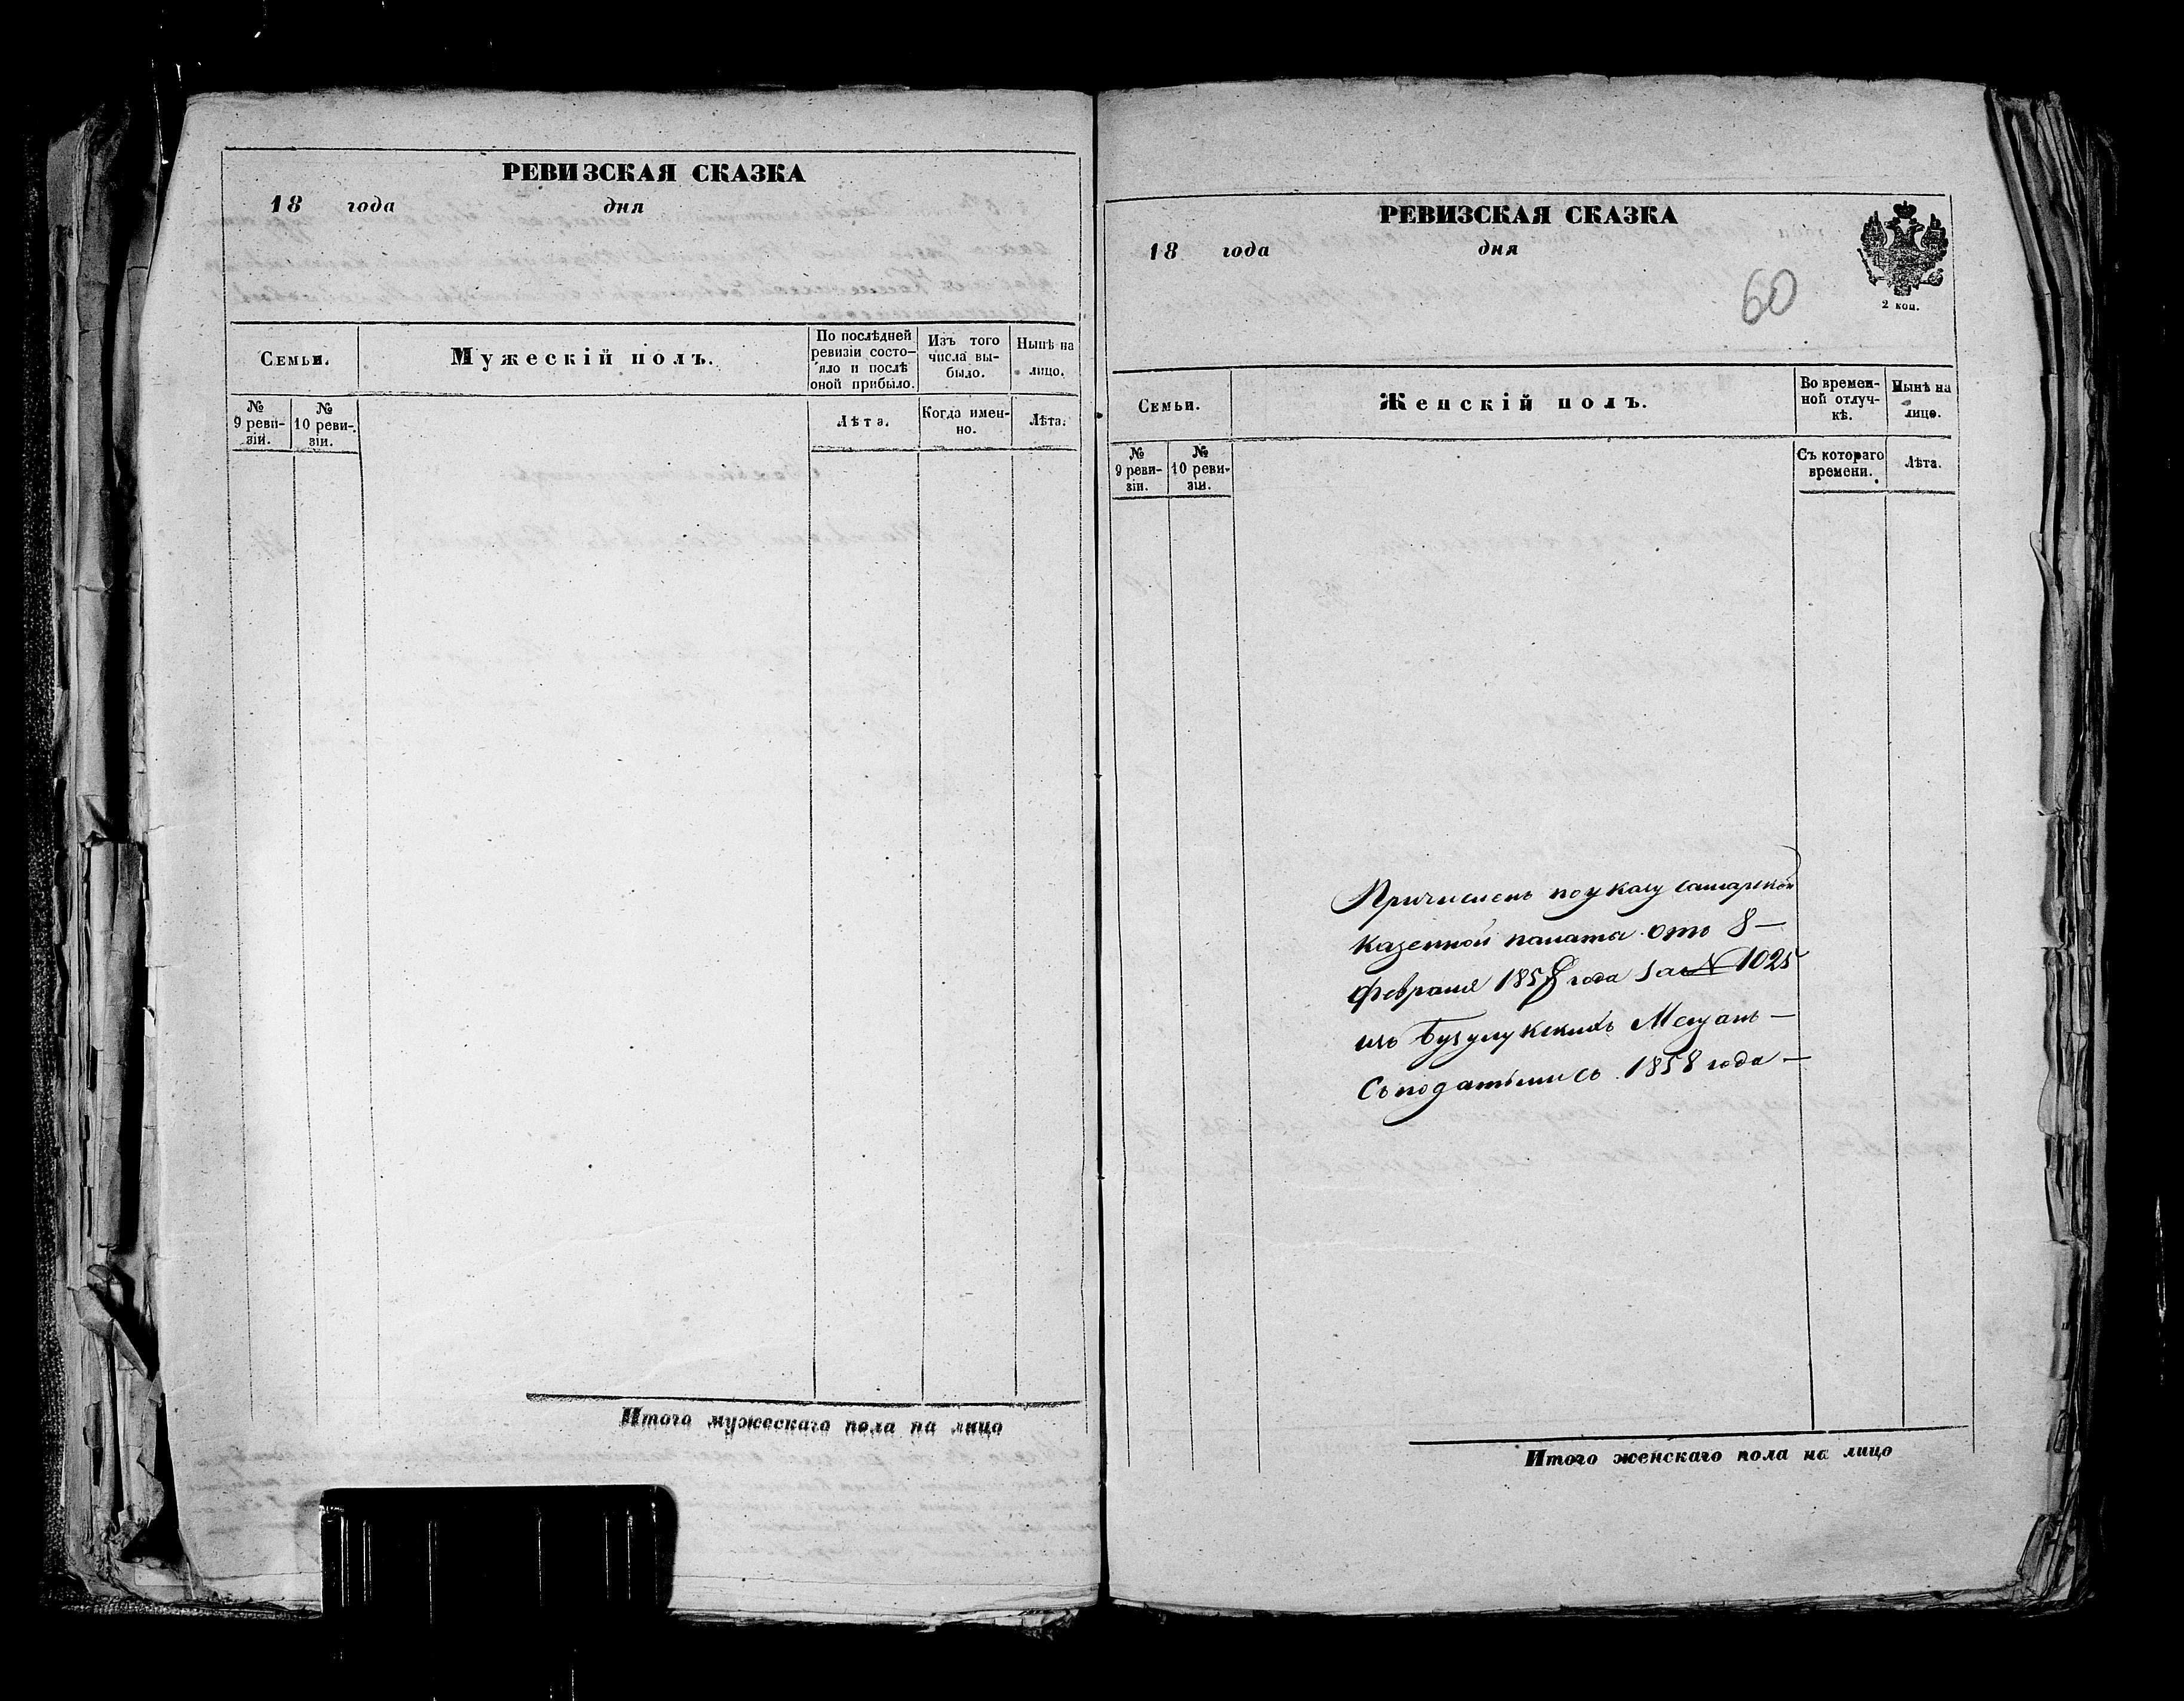 РЕВИЗСКАЯ СКАЗКА
18 года дня
Семьи.
Мужескій полъ.
По послѣдней ревизіи состо-яло и послѣ оной прибыло.
Изъ того числа вы-было.
Нынѣ на лицо.
№ 9 реви-зіи.
№ 10 реви-зіи.
Лѣта.
Когда имен-но.
Лѣта.
Итого мужескаго пола на лицо
РЕВИЗСКАЯ СКАЗКА
18 года дня
60
2 коп.
Семьи.
Женскій полъ.
Во времен-ной отлуч-кѣ.
Нынѣ на лицо.
№ 9 реви-зіи.
№ 10 реви-зіи.
Съ котораго времени.
Лѣта.
Причисленъ по указу самарской
казенной палаты отъ 8
февраля 1858 года за № 1025
изъ Бузулукскихъ Мещанъ
Съ податьми съ 1858 года
Итого женскаго пола на лицо